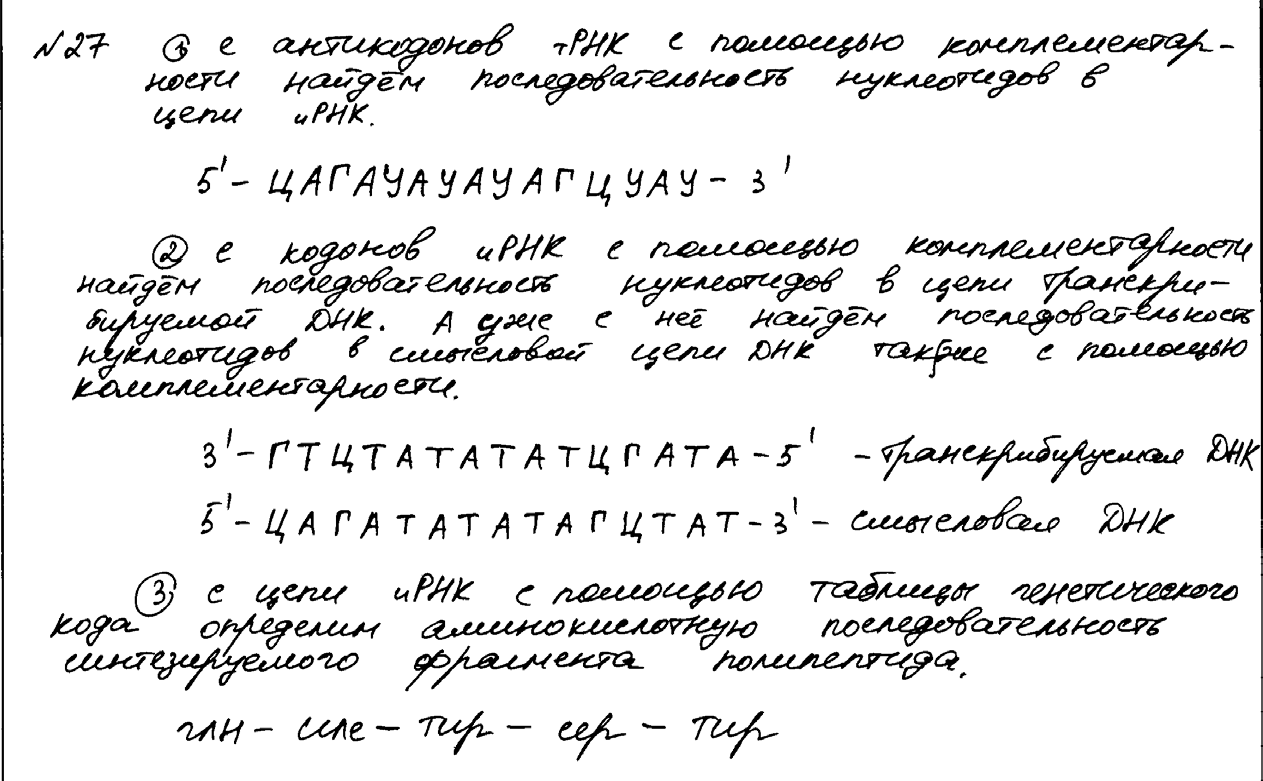 №27 ① с антикодонов тРНК с помощью комплементар-
ности найдём последовательность нуклеотидов в
цепи иРНК.
5' - ЦАГАУАУАУАГЦУАУ - 3'
② с кодонов иРНК с помощью комплементарности
найдём последовательность нуклеотидов в цепи транскри-
бируемой ДНК. А уже с неё найдём последовательность
нуклеотидов в смысловой цепи ДНК также с помощью
комплементарности.
3' - ГТЦТАТАТАТЦГАТА - 5' - транскрибируемая ДНК
5' - ЦАГАТАТАТАГЦТАТ - 3' - смысловая ДНК
③ с цепи иРНК с помощью таблицы генетического
кода определим аминокислотную последовательность
синтезируемого фрагмента полипептида.
глн - иле - тир - сер - тир